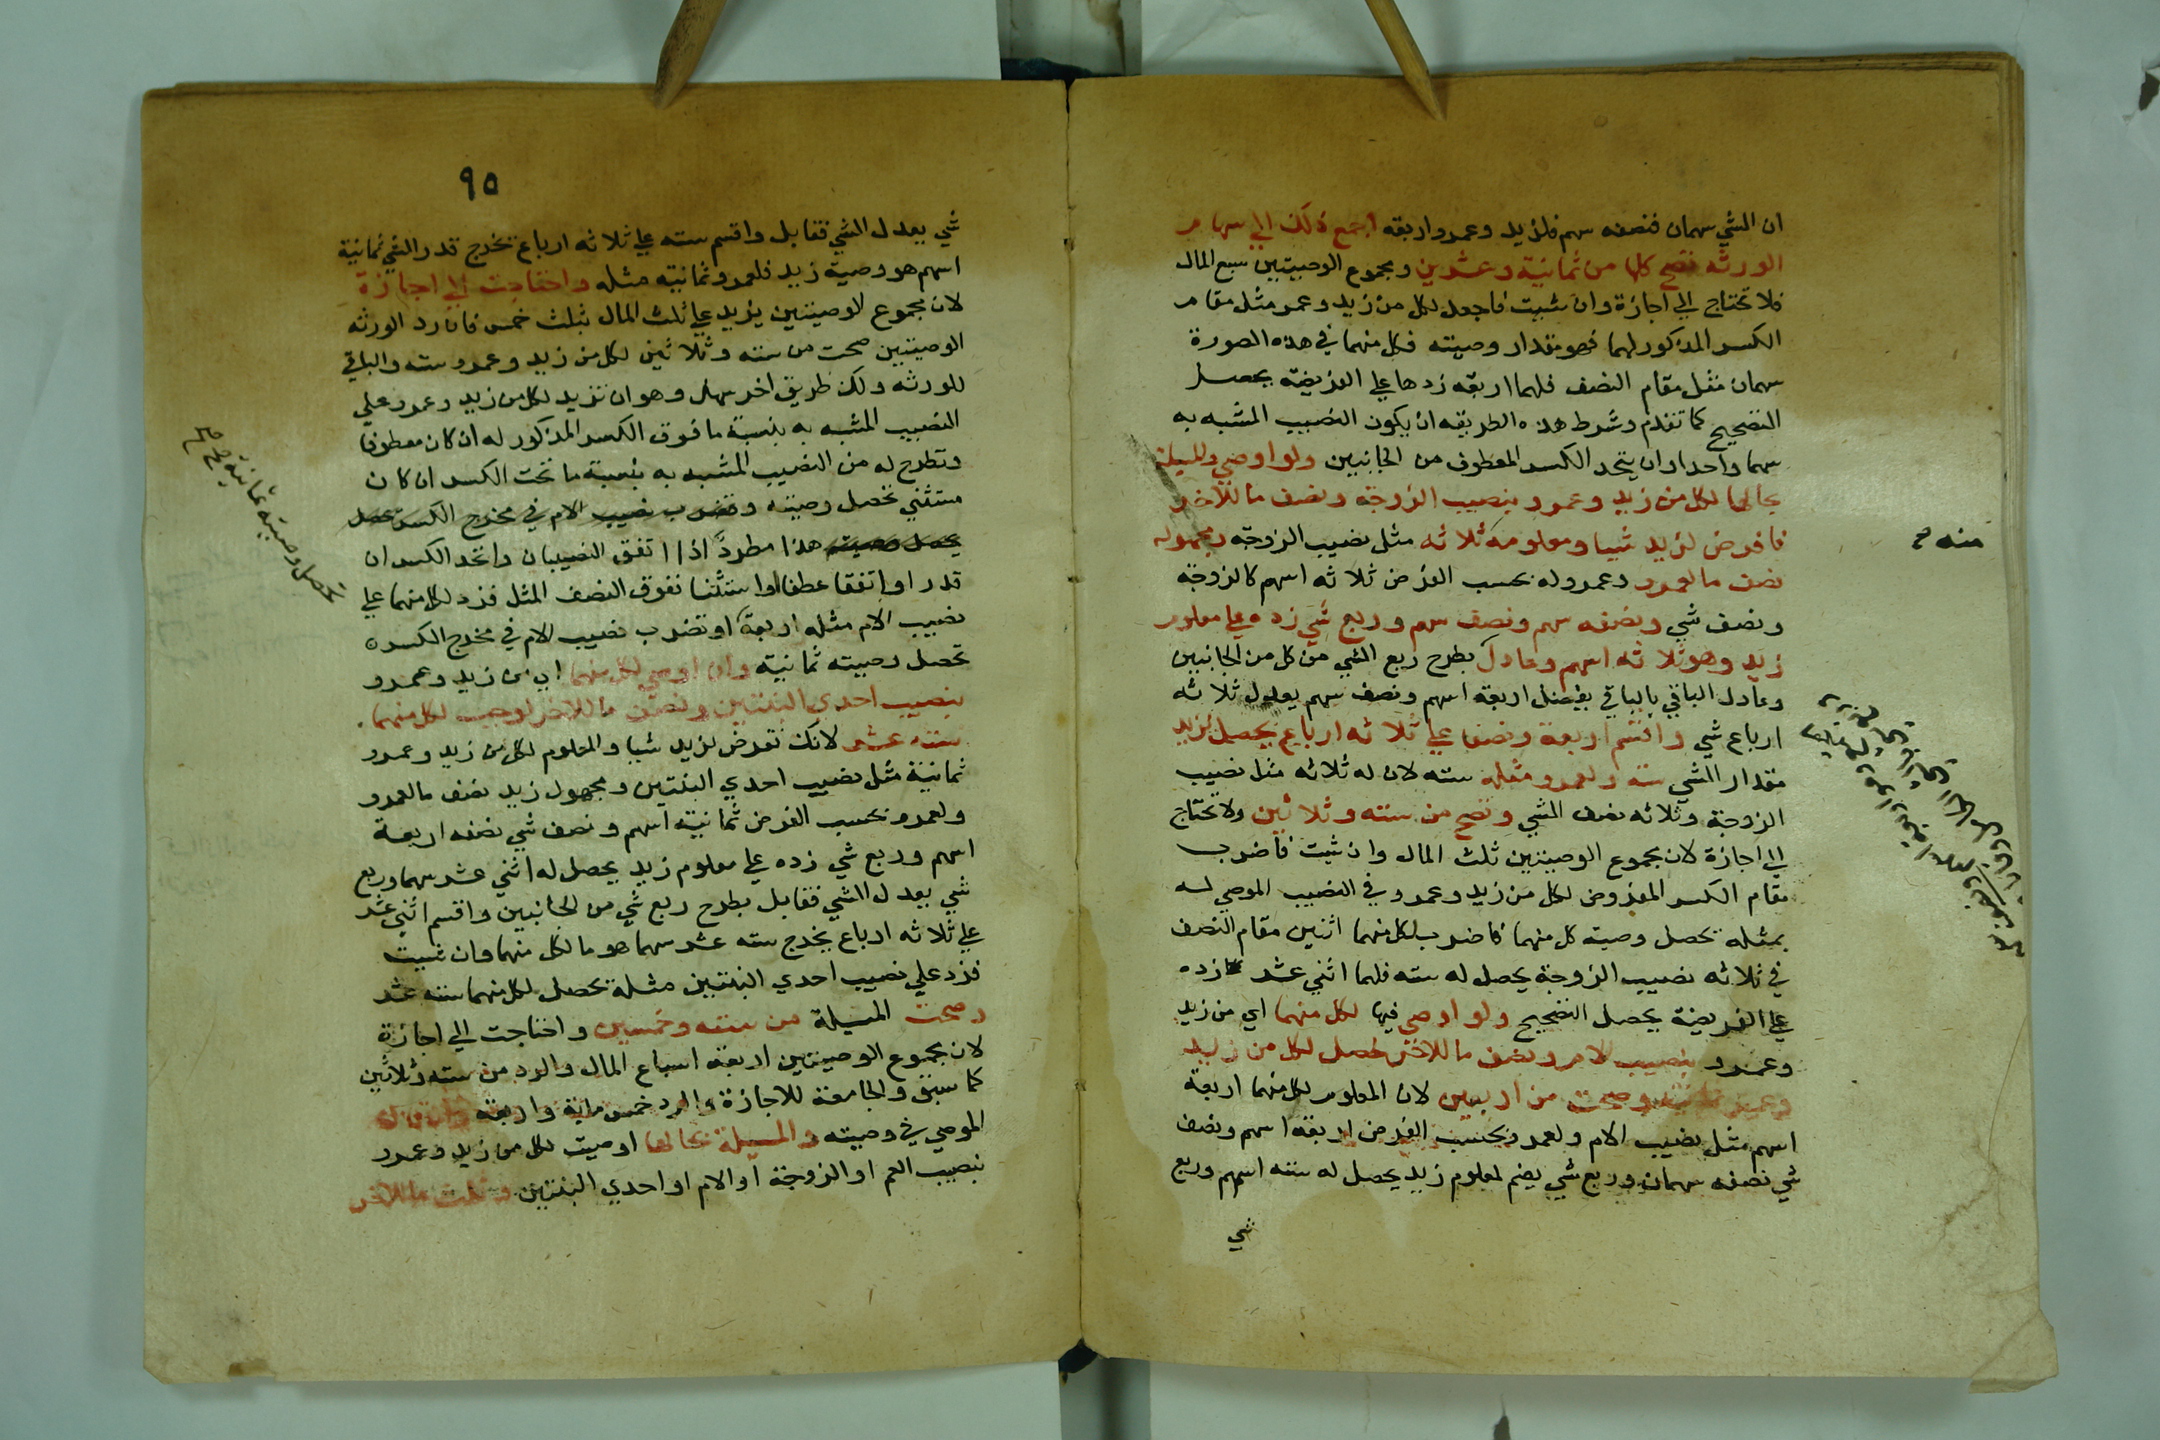 ان الشي سهمان فنصفه سهم فلزيد وعمرو اربعه اجمع ذلك الي سهام
الورثه تصح كلها من ثمانية وعشرين ومجموع الوصيتين سبع المال
فلا تحتاج الي اجازة وان شيت فاجعل لكل من زيد وعمرو مثل مقام
الكسر المذكور لهما فهو مقدار وصيته فكل منهما في هذه الصورة
سهمان مثل مقام النصف فلهما اربعه زدها علي الفريضه يحصل
التصحيح كما تقدم وشرط هذه الطريقه ان يكون النصيب المشبه به
سهما واحدا وان يتحد الكسر المعطوف من الجانبين ولو اوصي والمسيلة
بحالها لكل من زيد وعمرو بنصيب الزوجة ونصف ما للاخر
فافرض لزيد شييا ومعلومه ثلاثه مثل نصيب الزوجة ومجهوله
منه
نصف ما لعمرو وعمرو له بحسب الفرض ثلاثه اسهم كالزوجة
ونصف شي ونصفه سهم ونصف سهم وربع شي زده علي معلوم
زيد وهو ثلاثه اسهم وعادل بطرح ربع الشي من كل من الجانبين
وعادل الباقي بالباقي يفضل اربعة اسهم ونصف سهم يعدل ثلاثه
ارباع شي واقسم اربعة ونصفا علي ثلاثه ارباع يحصل لزيد
مقدار الشي سته ولعمرو مثله سته لان له ثلاثه مثل نصيب
الزوجة وثلاثه نصف الشي وتصح من سته وثلاثين ولا تحتاج
الي اجازة لان مجموع الوصيتين ثلث المال وان شيت فاضرب
مقام الكسر المفروض لكل من زيد وعمرو في النصيب الموصي له
بمثله تحصل وصية كل منهما فاضرب لكل منهما اثنين مقام النصف
في ثلاثه نصيب الزوجة يحصل له سته فلهما اثني عشر زده
علي الفريضة يحصل التصحيح ولو اوصي فيها لكل منهما اي من زيد
وعمرو بنصيب الام ونصف ما للاخر حصل لكل من زيد
وعمرو ثمانية وصحت من اربعين لان المعلوم لكل منهما اربعة
اسهم مثل نصيب الام ولعمرو بحسب الفرض اربعة اسهم ونصف
شي نصفه سهمان وربع شي يضم لمعلوم زيد يحصل له سته اسهم وربع
شي
٩٥
شي يعدل الشي فقابل واقسم سته علي ثلاثه ارباع تخرج قدر الشي ثمانية
اسهم هو وصية زيد فلعمرو ثمانية مثله واحتاجت الي اجازة
لان مجموع الوصيتين يزيد علي ثلث المال بثلث خمس فان رد الورثه
الوصيتين صحت من سته وثلاثين لكل من زيد وعمرو سته والباقي
للورثه ولك طريق اخر سهل وهو ان تزيد لكل من زيد وعمرو علي
النصيب المشبه به بنسبة ما فوق الكسر المذكور له ان كان معطوفا
وتطرح له من النصيب المشبه به بنسبة ما تحت الكسر ان كان
مستثني تحصل وصيته وتضرب نصيب الام في مخرج الكسر تحصل
تحصل وصيته هذا مطردا اذا اتفق النصيبان واتحد الكسران
قدرا واتفقا عطفا او استثنا ففوق النصف المثل فزد لكل منهما علي
نصيب الام مثله اربعة او تضرب نصيب الام في مخرج الكسر
تحصل وصيته ثمانية وان اوصي لكل منهما اي من زيد وعمرو
بنصيب احدي البنتين ونصف ما للاخر لوجب لكل منهما
سته عشر لانك تفرض لزيد شييا والمعلوم لكل من زيد وعمرو
ثمانية مثل نصيب احدي البنتين ومجهول زيد نصف ما لعمرو
ولعمرو بحسب الفرض ثمانية اسهم ونصف شي نصفه اربعة
اسهم وربع شي زده علي معلوم زيد يحصل له اثني عشر سهما وربع
شي يعدل الشي فقابل بطرح ربع شي من الجانبين واقسم اثني عشر
علي ثلاثه ارباع يخرج سته عشر سهما هو ما لكل منهما وان شيت
فزد علي نصيب احدي البنتين مثله تحصل لكل منهما سته عشر
وصحت المسيلة من سته وخمسين واحتاجت الي اجازة
لان مجموع الوصيتين اربعة اسباع المال والرد من سته وثلاثين
كما سبق والجامعة للاجازة والرد خمس ماية واربعة وان قال
الموصي في وصيته والمسيلة بحالها اوصيت لكل من زيد وعمرو
بنصيب العم او الزوجة او الام او احدي البنتين وثلث ما للاخر
تحصل وصيته ثمانية صح